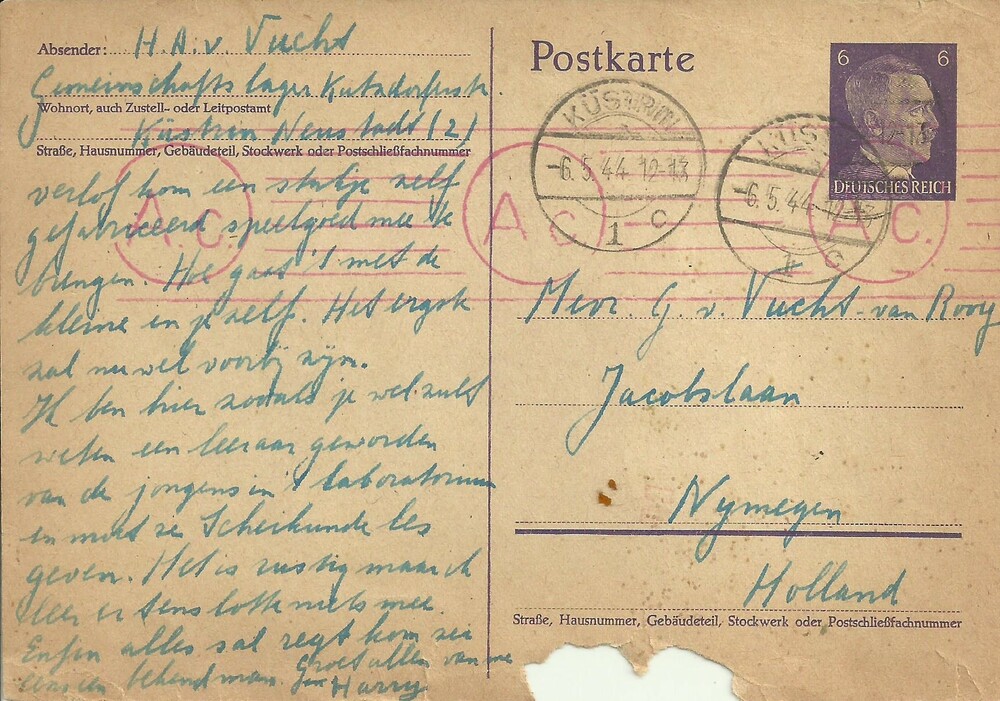 Absender: H. A. v. Vucht
Gemeinschaftslager
Wohnort, auch Zustell- oder Leitpostamt
Küstrin Neustadt (2)
Straße, Hausnummer, Gebäudeteil, Stockwerk oder Postschließfachnummer
verlof kom een stukje zelf
gefabriceerd speelgoed mee te
brengen. Hoe gaat 't met de
kleine en je zelf. Het ergste
zal nu wel voorbij zijn.
Ik ben hier zooals je wel zult
weten een leeraar geworden
van de jongens in 't laboratorium
en moet ze Scheikunde les
geven. Het is rustig maar ik
leer er tenslotte niets mee.
Enfin alles sal regt kom sei
behend man. Groet allen van me
Harry
Postkarte
6 6
DEUTSCHES REICH
KÜSTRIN
-6.5.44.12-13
1 c
KÜST
-6.5.44-12-13
1 c
A.c
Ac
Ac.
Mevr. G. v. Vucht-van Rooy
Jacobslaan
Nymegen
Holland
Straße, Hausnummer, Gebäudeteil, Stockwerk oder Postschließfachnummer